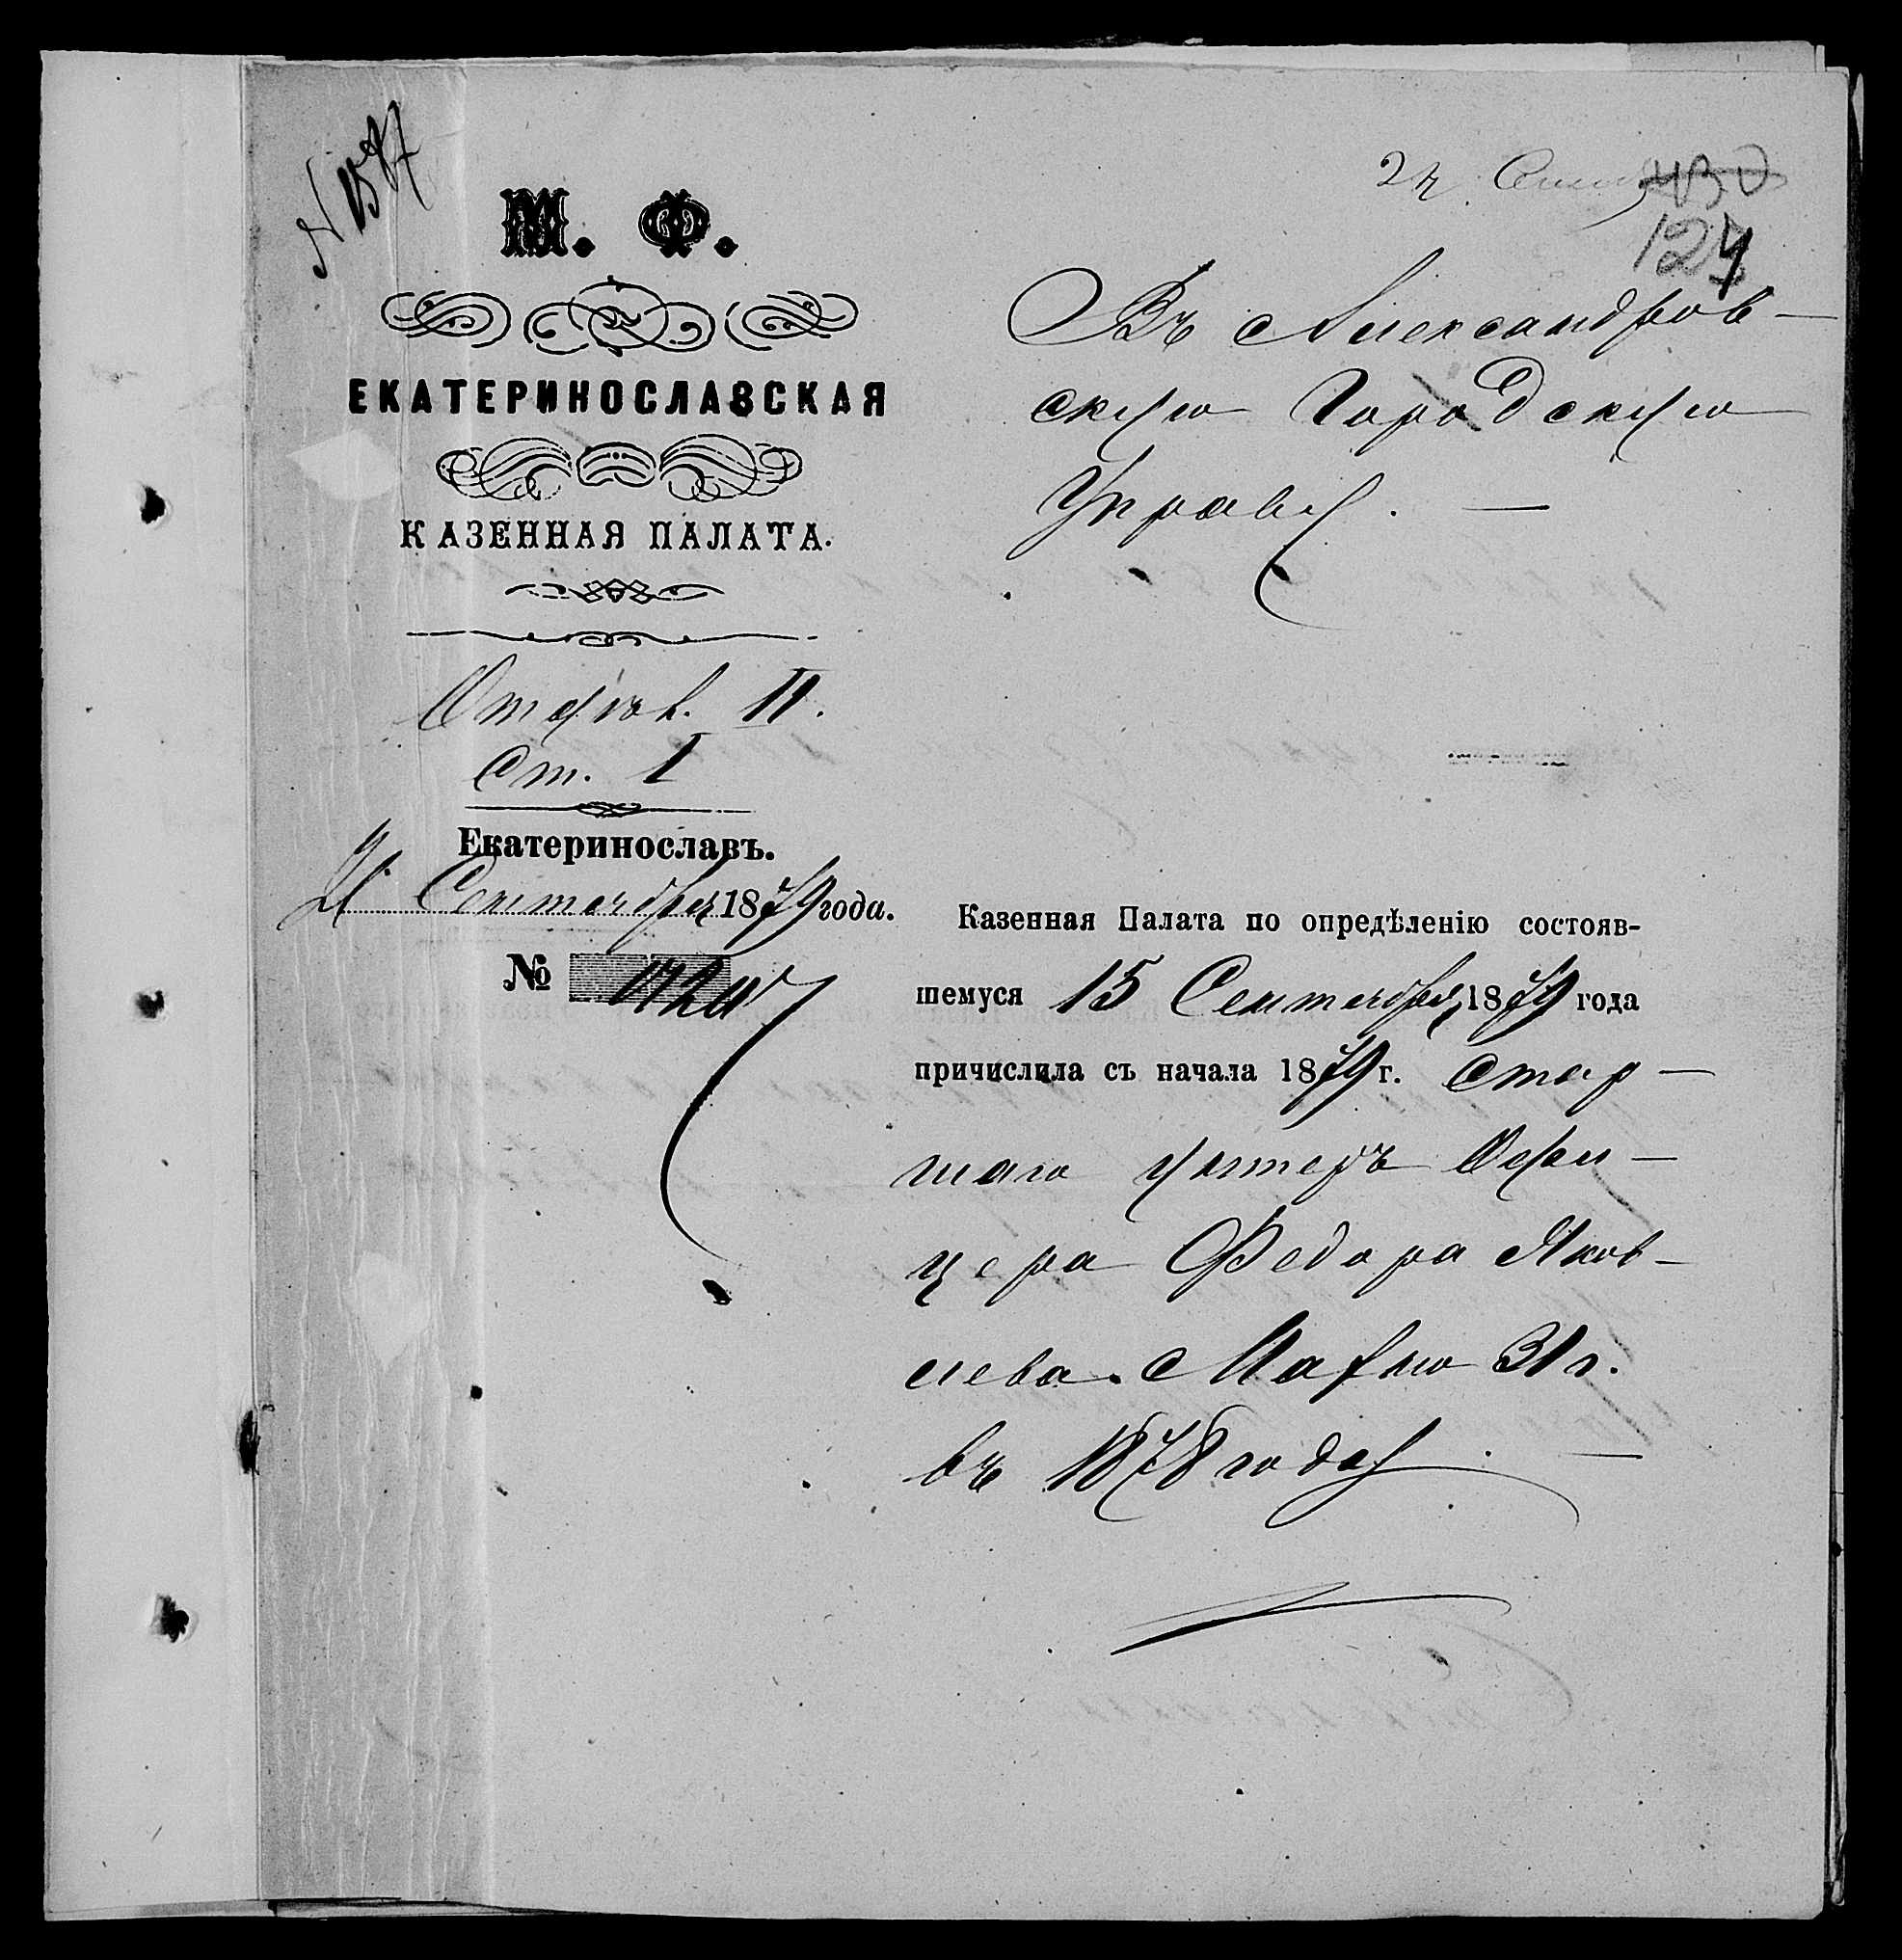 N 1587
М. Ф.
ЕКАТЕРИНОСЛАВСКАЯ
КАЗЕННАЯ ПАЛАТА.
Отдѣл. II.
Ст. I
Екатеринославъ.
21 Сентября 1879 года.
№
24 Сент
430
124
Въ Александров-
скую Городскую
Управу.
Казенная Палата по опредѣленію состояв-
шемуся 15 Сентября 1879 года
причислила съ начала 1879 г. Стар-
шаго унтеръ Офи-
цера Федора Яков-
лева Махно 31 г.
въ 1878 году.